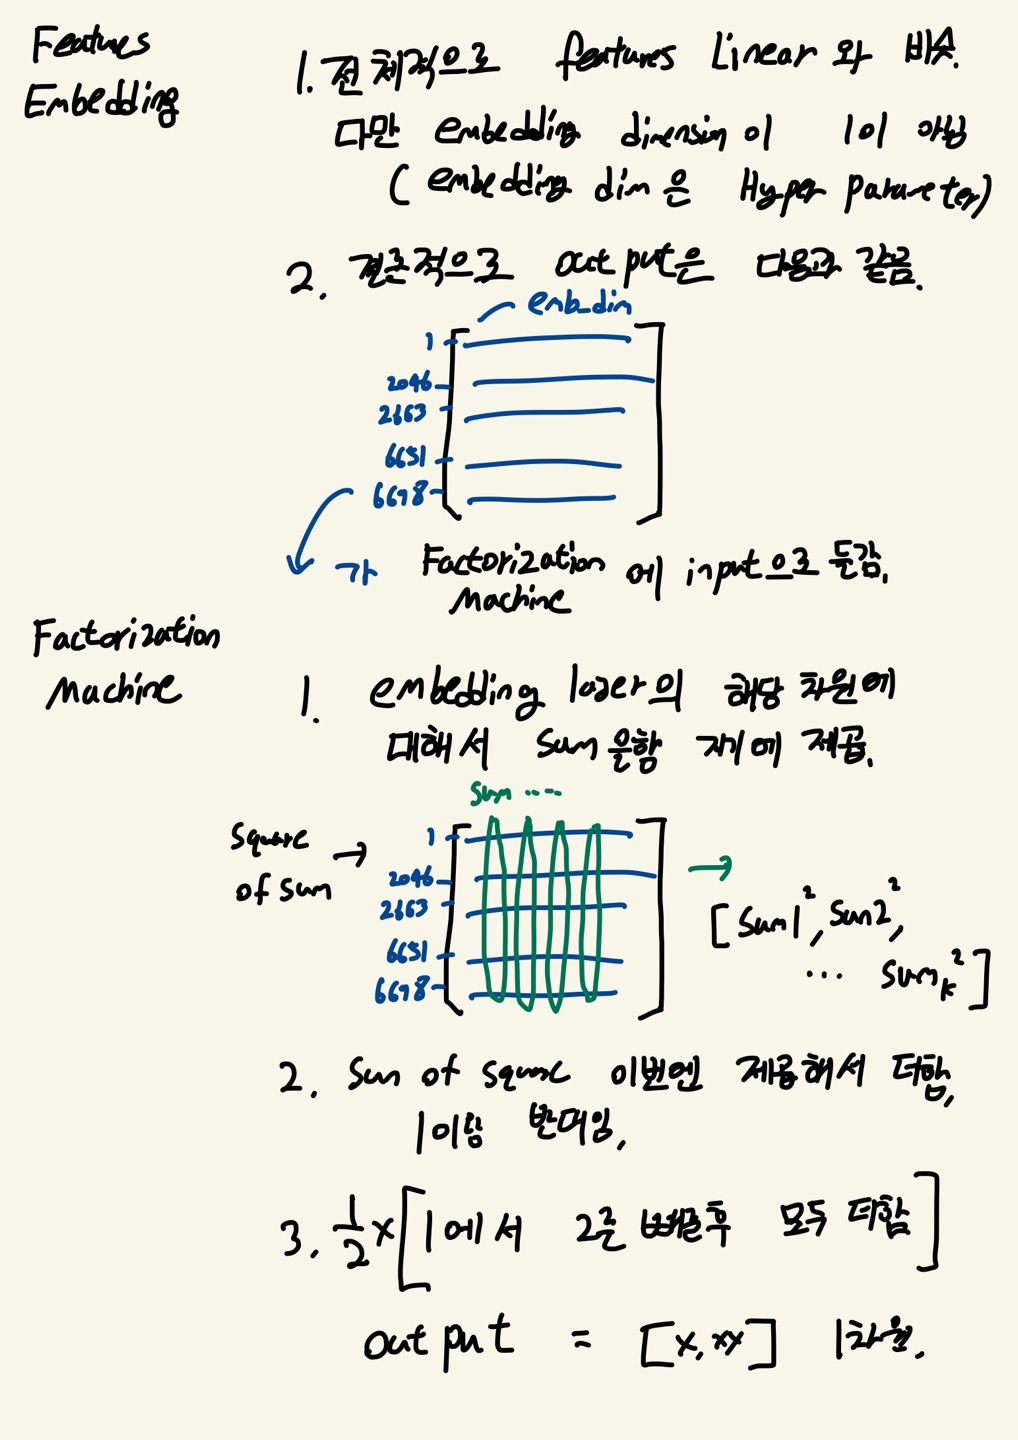 Features
Embedding
1. 전체적으로 features Linear 와 비슷.
다만 embedding dimension이 1이 아님
( embedding dim은 Hyper parameter)
2. 결론적으로 output은 다음과 같음.
emb_dim
1
2046
2663
6651
6698
가 Factorization
Machine 에 input으로 들감.
Factorization
Machine
1. embedding layer의 해당 차원에
대해서 sum을함 거기에 제곱.
sum ....
square
of sum →
1
2046
2663
6651
6698
→
[sum1², sum2²,
... sumₖ²]
2. sum of square 이번엔 제곱해서 더함,
1이랑 반대임.
3. 1/2 x [1에서 2를 빼준후 모두 더함]
output = [x.xx] 1차원.